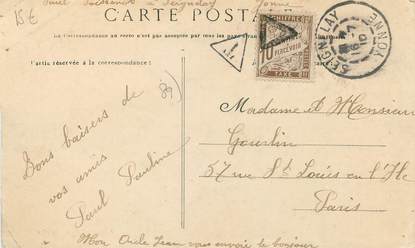 15€
Paul à Seignelay Yonne
CARTE POSTALE
La correspondance au recto n'est pas acceptée par tous les pays étrangers
Partie réservée à la correspondance
T
CHIFFRE
A PERCEVOIR
TAXE
SEIGNELAY
YONNE
89)
Bons baisers de
vos amis
Paul Pauline
Madame et Monsieur
Gourlin
57 rue St Louis en l'Ile
Paris
Mon Oncle Jean vous envoie le bonjour